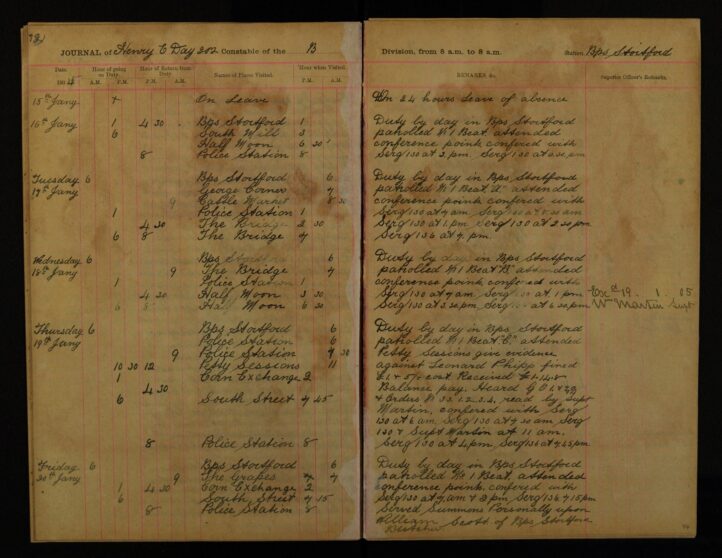 JOURNAL of Henry C Day 202 Constable of the B
Division, from 8 a.m. to 8 a.m. Station, Bps Stortford
Date. Hour of going on Duty. Hour of Return from Duty. Names of Places Visited. Hour when Visited. REMARKS &c. Superior Officer's Remarks.
190 A.M. P.M. A.M. P.M. P.M. A.M.
15th Jany On Leave On 24 hours leave of absence
16th Jany 1 4 30 Bps Stortford 1 Duty by day in Bps Stortford
6 South Mill 3 patrolled No 1 Beat attended
Half Moon 6 30 conference point confered with
8 Police Station 8 Serg 130 at 3 pm. Serg 130 at 6.30 pm
Tuesday 6 Bps Stortford 6 Duty by day in Bps Stortford
17th Jany George Corner 7 patrolled No 1 Beat attended
9 Castle Market 8 30 conference point confered with
1 Police Station 1 Serg 130 at 7 am. Serg 130 at 8.30 am
4 30 The Bridge 2 30 Serg 130 at 1 pm. Serg 130 at 2.30 pm
6 8 The Bridge 7 Serg 136 at 7 pm.
Wednesday 6 Bps Stortford 6 Duty by day in Bps Stortford
18th Jany 9 The Bridge 7 patrolled No 1 Beat "B" attended
1 Police Station 1 conference point confered with
4 30 Half Moon 3 30 Serg 130 at 7 am. Serg at 1 pm Exd 19. 1. 05
6 8 Half Moon 6 30 Serg 130 at 3.30 pm. Serg at 6.30 pm Wm Martin Supt
Thursday 6 Bps Stortford 6 Duty by day in Bps Stortford
19th Jany Police Station 6 patrolled No 1 Beat "C" attended
9 Police Station 9 30 Petty Sessions give evidence
10 30 12 Petty Sessions 11 against Leonard Phipp fined
1 Corn Exchange 2 cost Received
4 30 Balance pay, Heard G O
6 South Street 7 45 & Orders 1.2.3.4, read by Supt
Martin, confered with Serg
130 at 6 am, Serg 130 at 9.30 am Serg
130 & Supt Martin at 11 am,
8 Police Station 8 Serg 130 at 2 pm, Serg 136 at 7.45 pm
Friday 6 Bps Stortford 6 Duty by day in Bps Stortford
20th Jany 9 The Grapes 7 patrolled No 1 Beat, attended
1 4 30 Corn Exchange 2 conference point, confered with
6 South, Street 7 15 Serg 130 at 7 am & 2 pm, Serg 136 7.15 pm
8 Police Station 8 Served Summons Personally upon
William Scott of Bps Stortford
Butcher